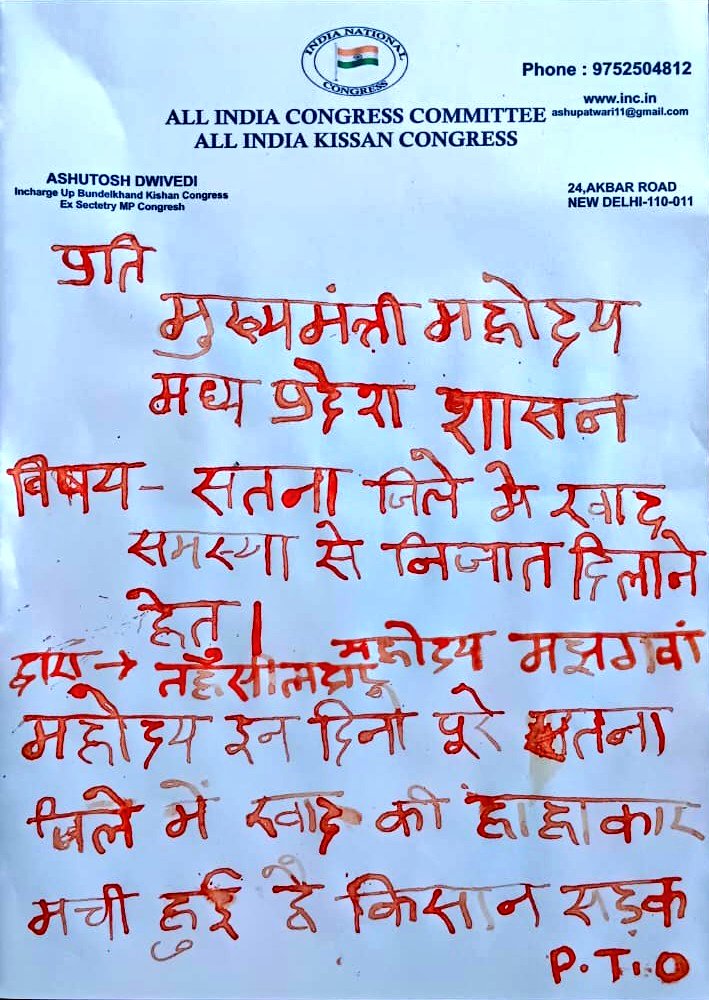 INDIA NATIONAL
CONGRESS
Phone : 9752504812
www.inc.in
ALL INDIA CONGRESS COMMITTEE ashupatwari11@gmail.com
ALL INDIA KISSAN CONGRESS
ASHUTOSH DWIVEDI
Incharge Up Bundelkhand Kishan Congress
Ex Sectetry MP Congresh
24,AKBAR ROAD
NEW DELHI-110-011
प्रति
मुख्यमंत्री महोदय
मध्य प्रदेश शासन
विषय - सतना जिले मे खाद
समस्या से निजात दिलाने
हेतु।
द्वारा → तहसीलदार महोदय मझगवां
महोदय इन दिनो पूरे सतना
जिले में खाद की हाहाकार
मची हुई है किसान सड़क
P.T.O